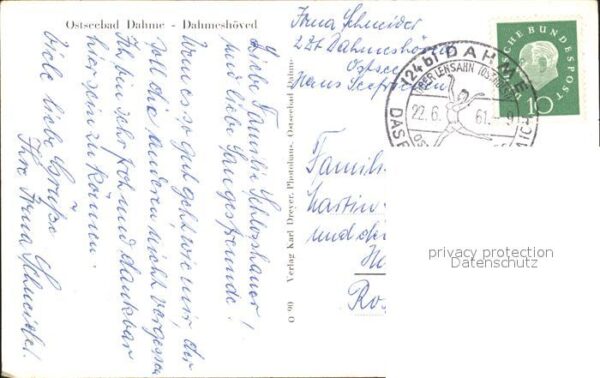 Ostseebad Dahme - Dahmeshöved
Liebe Familie Schlosshauer
und liebe Sangesfreunde!
Wenn es so gut geht wie mir, der
soll die anderen nicht vergessen
Ich bin sehr froh und dankbar
hier sein zu können.
Viele liebe Grüße
Ihre Anna Schneider.
O 90 Verlag Karl Dreyer, Photohaus, Ostseebad Dahme
Anna Schneider
z Zt Dahmeshöved
Ostsee
Haus Seefrieden
(24b) DAHME
ÜBER LENSAHN (OSTHOLST)
22.6.61.-9
DAS
DEUTSCHE BUNDESPOST
10
Famili
Martin
und
Ro
privacy protection
Datenschutz